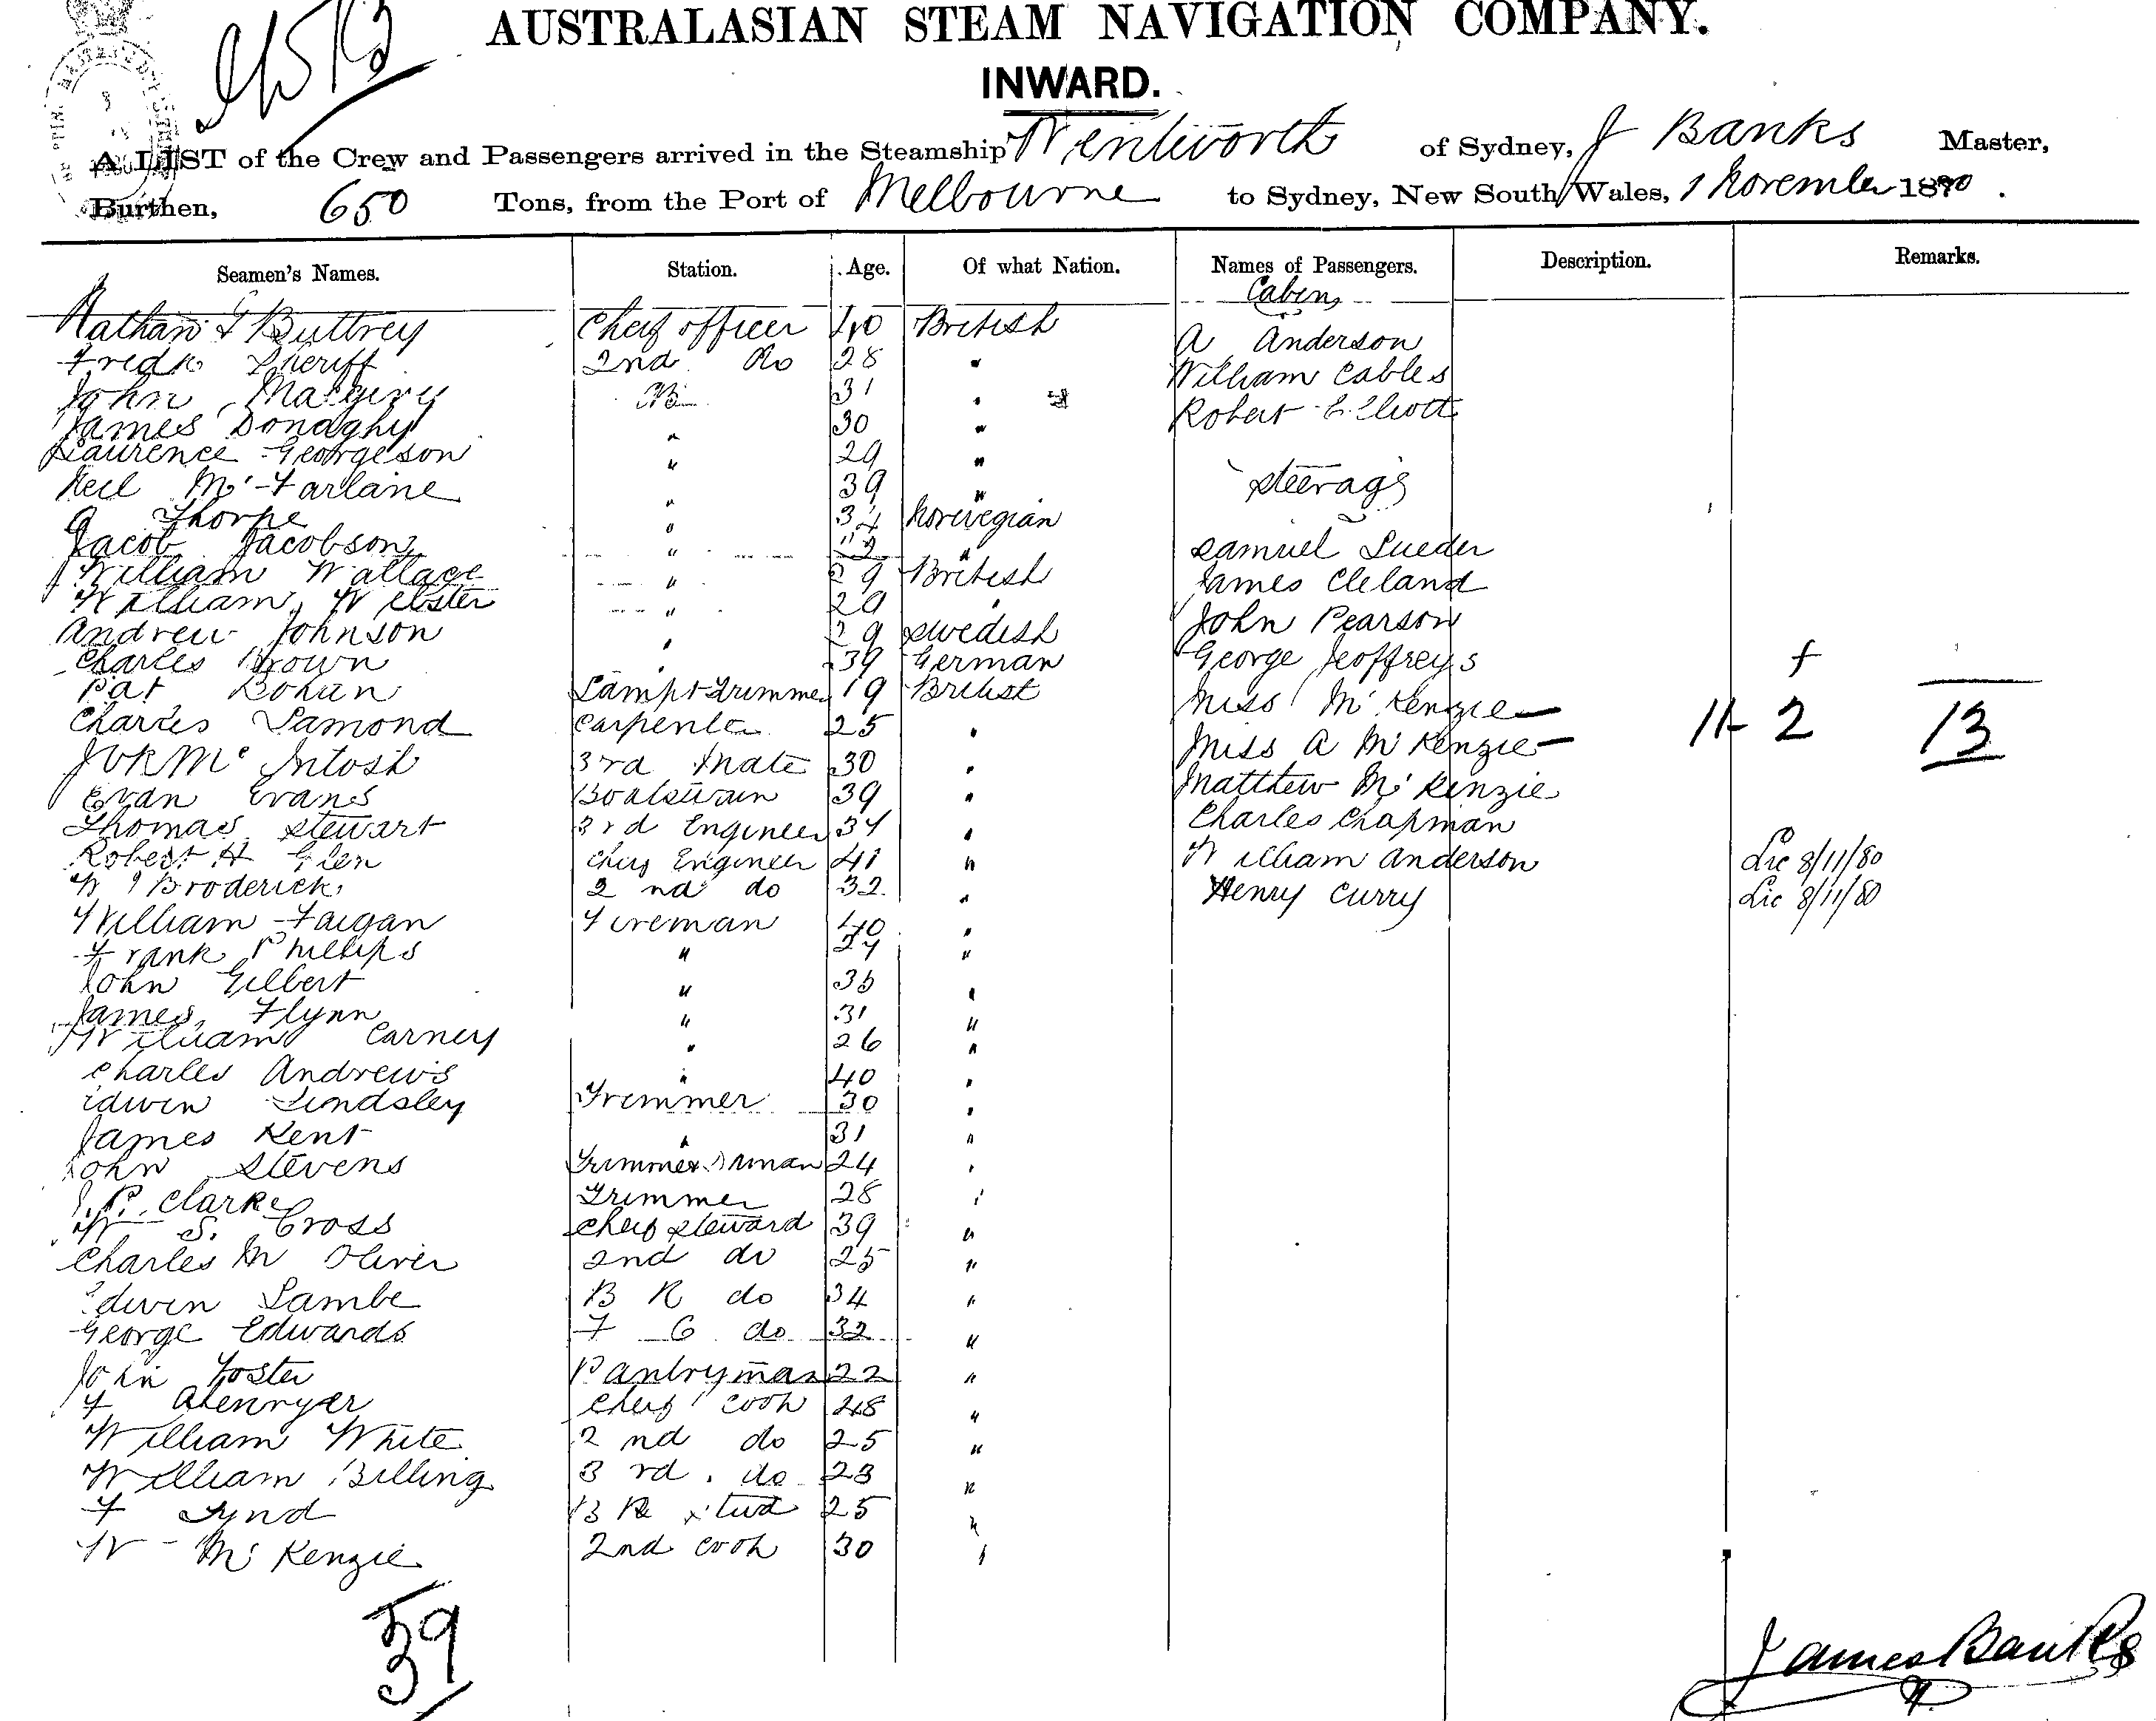 AUSTRALASIAN STEAM NAVIGATION COMPANY.
INWARD.
A LIST of the Crew and Passengers arrived in the Steamship Wentworth of Sydney, J Banks Master,
Burthen, 650 Tons, from the Port of Melbourne to Sydney, New South Wales, 1 November 1880.
Seamen's Names. Station. Age. Of what Nation. Names of Passengers. Description. Remarks.
Cabin
Nathan G Buttrey Cheif officer 40 British A Anderson
Fredk Sheriff 2nd Do 28 " William Cables
John 31 " Robert Elliott
James Donaghy " 30 "
Laurence Georgeson " 29 "
Neil Mc Farlane " 39 " Steerage
Thorpe " 34 Norwegian
Jacob Jacobson " " Samuel Lueder
William Wallace " 29 British James Cleland
William Webster " 29 " John Pearson
Andrew Johnson " 29 Swedish George Jeoffreys
Charles Brown " 39 German Miss Mc Kenzie
Pat Bohan Lamp Trimmer 19 British Miss A Mc Kenzie
Charles Lamond Carpenter 25 " Matthew Mc Kenzie
Mc Intosh 3rd Mate 30 " Charles Chapman
Evan Evans Boatswain 39 " William Anderson Lic 8/11/80
Thomas Stewart 3rd Engineer 34 " Henry Curry Lic 8/11/80
Robert H Glen Cheif Engineer 41 "
W J Broderick 2nd do 32 "
William Faigan Fireman 40 "
Frank Phillips " 27 "
John Gilbert " 35 "
James Flynn " 31 "
William Carney " 26 "
Charles Andrews " 40 "
Edwin Lindsley Trimmer 30 "
James Kent " 31 "
John Stevens 24 "
J. P. Clarke Trimmer 28 "
W S. Cross Cheif Steward 39 "
Charles M Oliver 2nd do 25 "
Edwin Lambe B R do 34 "
George Edwards F C do 32 "
John Foster Pantryman 22 "
F Cheif Cook 48 "
William White 2nd do 25 "
William Billing 3rd do 23 "
F Lynd B R Stwd 25 "
W Mc Kenzie 2nd Cook 30 "
f
11 2 13
39
James Banks